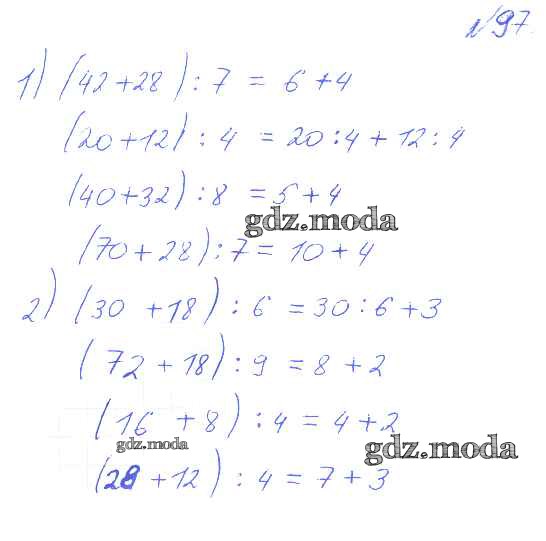 №97.
1) (42+28) : 7 = 6+4
(20+12) : 4 = 20:4+12:4
(40+32) : 8 = 5+4
gdz.moda
(70+28) : 7 = 10+4
2) (30+18) : 6 = 30:6+3
(72+18) : 9 = 8+2
(16+8) : 4 = 4+2
gdz.moda
gdz.moda
(28+12) : 4 = 7+3